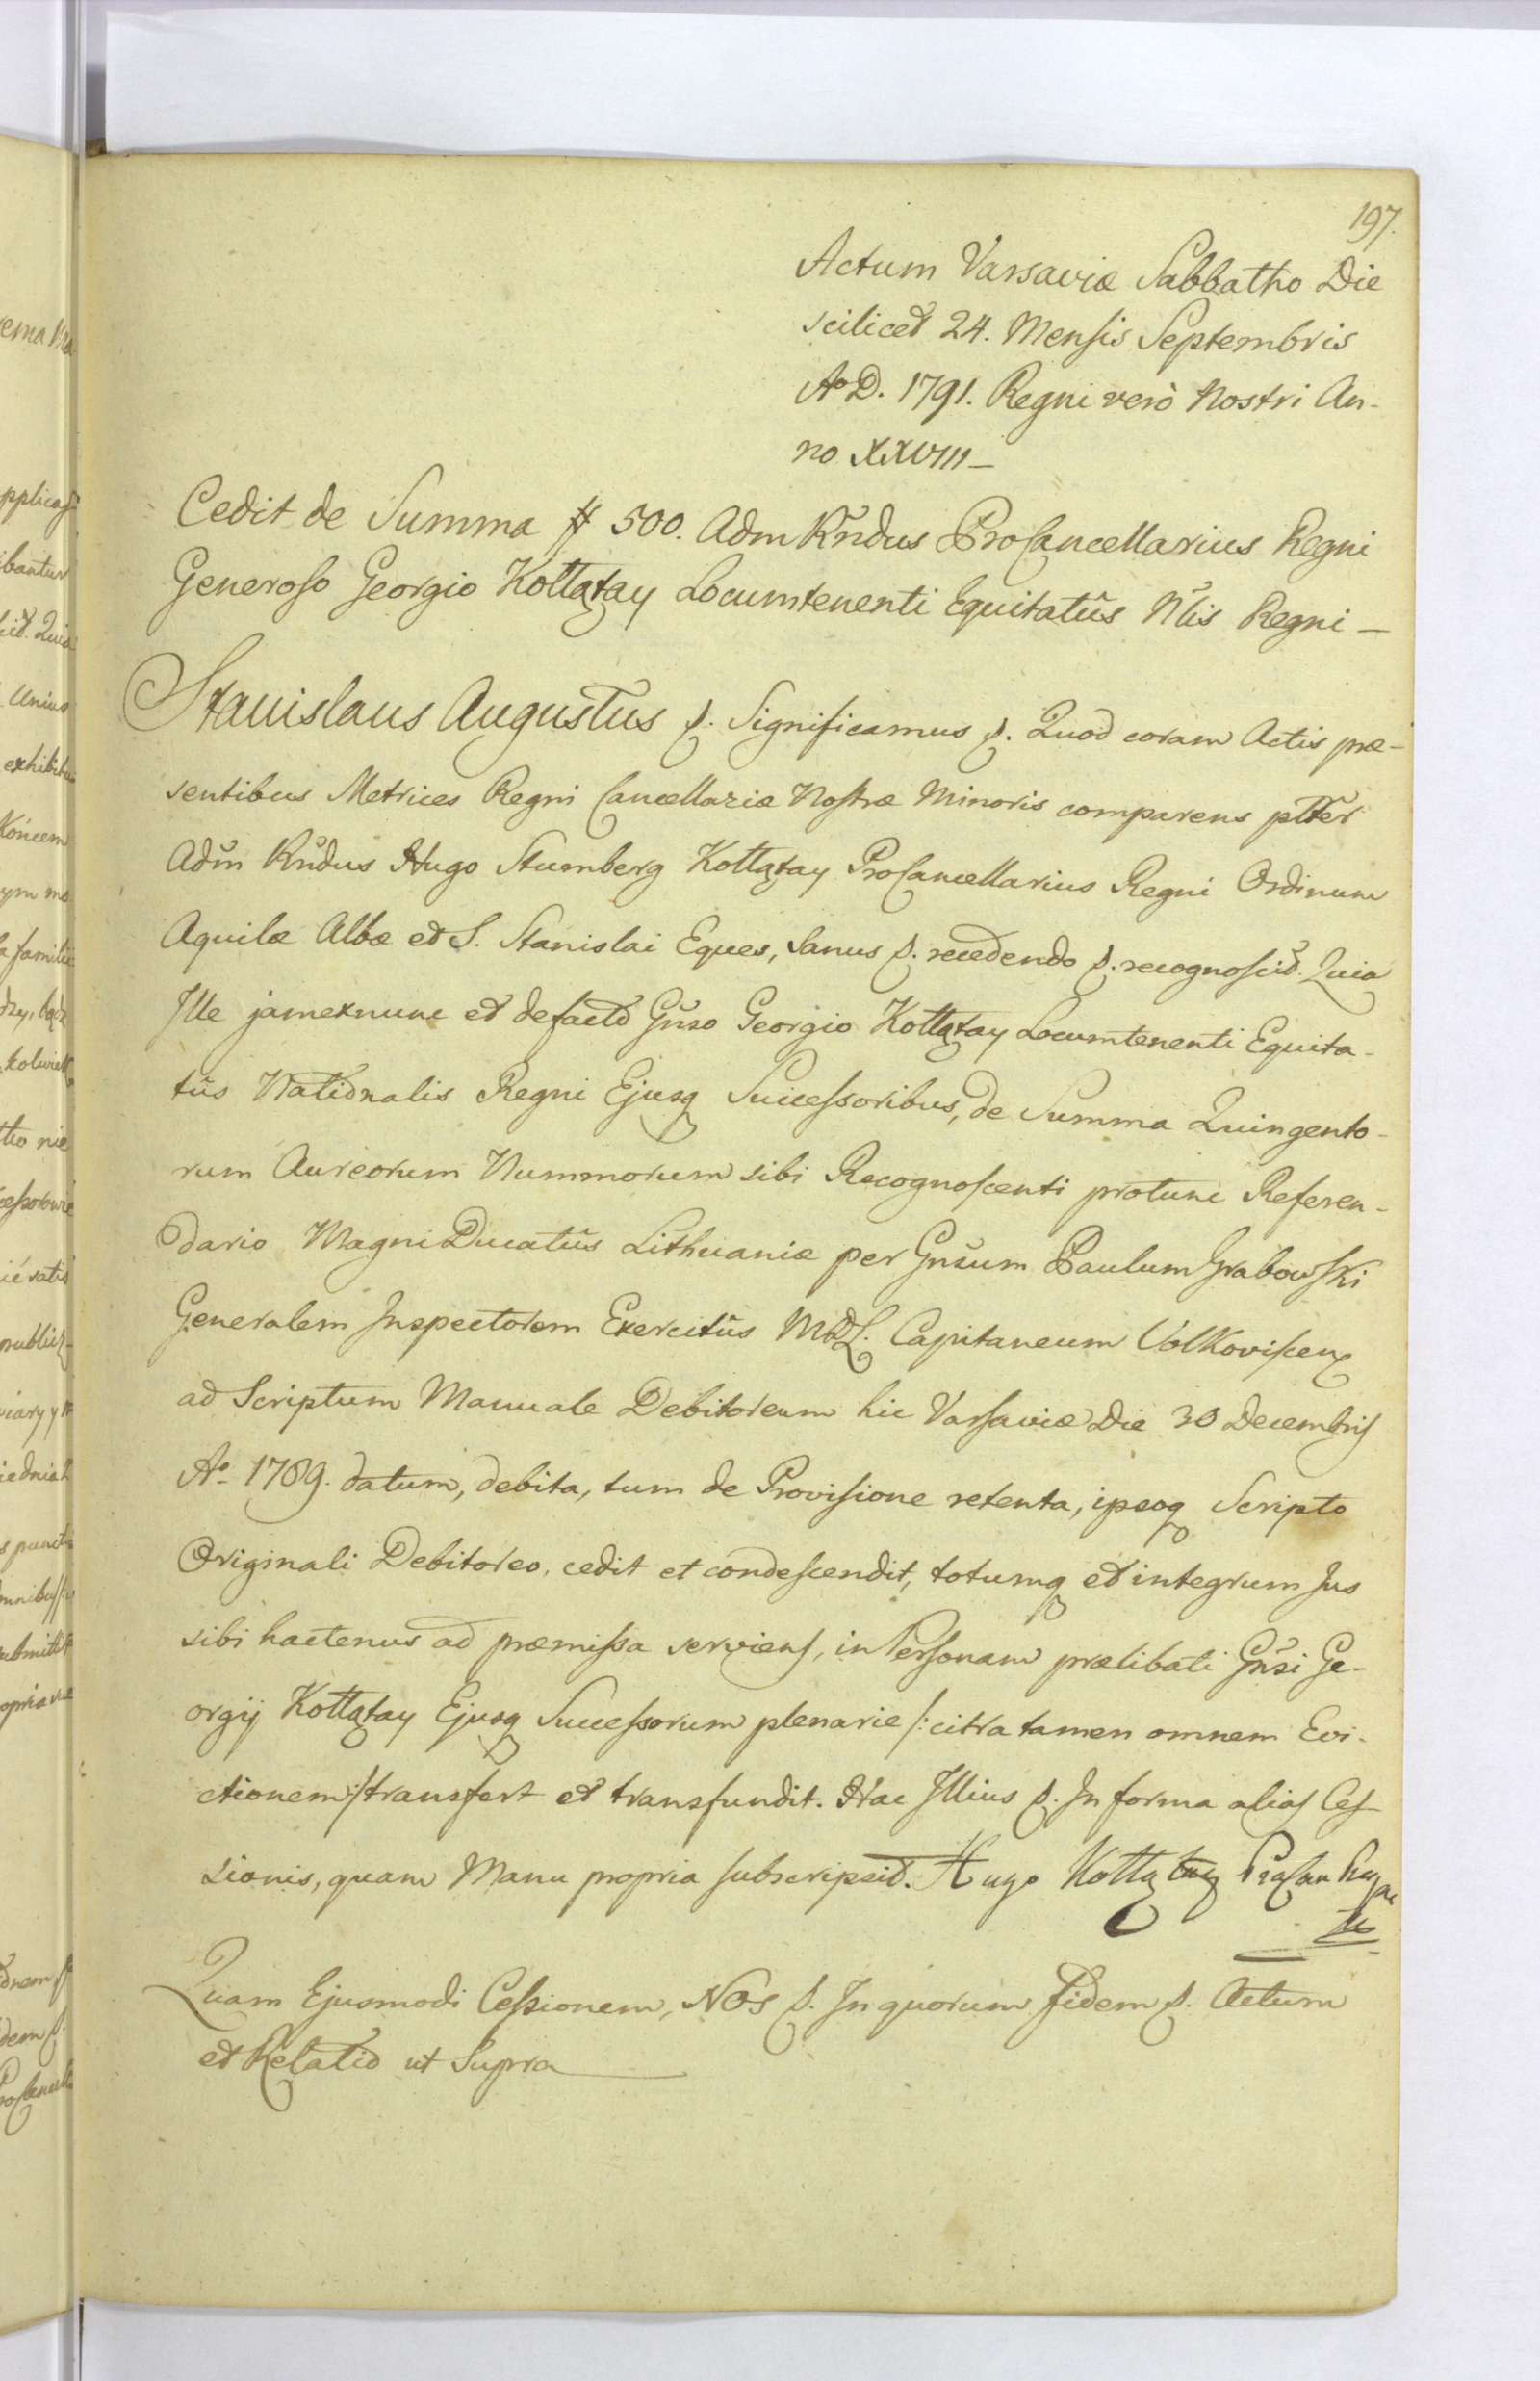 197.
Actum Varsaviæ Sabbatho Die
scilicet 24. Mensis Septembris
Aº D. 1791. Regni verò Nostri An-
no XXVIII –
Cedit de Summa # 500. Adm Rndus ProCancellarius Regni
Generoso Georgio Kołłątay Locumtenenti Equitatûs Nlis Regni –
Stanislaus Augustus p. Significamus p. Quod coram Actis præ-
sentibus Metrices Regni Cancellariæ Nostræ Minoris comparens plter
Adm Rndus Hugo Stumberg Kołłątay ProCancellarius Regni Ordinum
Aquilæ Albæ et S. Stanislai Eques, Sanus p. recedendo p. recognoscit. Quia
Ille jamexnunc et defacto Gnso Georgio Kołłątay Locumtenenti Equita-
tûs Nationalis Regni Ejusq Successoribus, de Summa Quingento-
rum Aureorum Nummorum sibi Recognoscenti protunc Referen-
dario Magni Ducatûs Lithuaniæ per Gnsum Paulum Grabowski
Generalem Inspectorem Exercitûs MDL. Capitaneum Volkoviscen
ad Scriptum Manuale Debitoreum hic Varsaviæ Die 30 Decembris
Aº 1789. datum, debita, tum de Provisione retenta, ipsoq Scripto
Originali Debitoreo, cedit et condescendit, totumq et integrum Jus
sibi hactenus ad præmissa serviens, in Personam prælibati Gnsi Ge-
orgij Kołłątay Ejusq Successorum plenarie /: citra tamen omnem Evi-
ctionem :/ transfert et transfundit. Hac Illius p. In forma alias Ces-
sionis, quam Manu propria subscripsit. Hugo Kołłątay
Quam Ejusmodi Cessionem, NOS p. In quorum Fidem p. Actum
et Relatio ut Supra